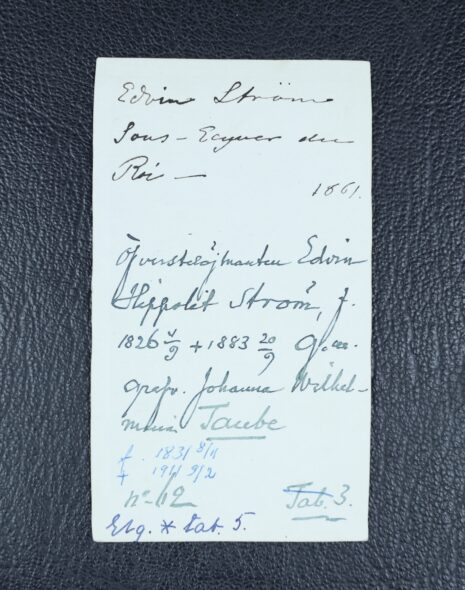 Edvin Ström
Sous-Ecuyer du
Roi —
1861.
Öfverstelöjtnanten Edvin
Hippolit Ström, f.
1826 /9 + 1883 20/9 G. m.
grefv. Johanna Wilhel-
mina Taube
f. 1831 8/11
† 1911 9/2
nº 12
Tab. 3.
Elg. * tab. 5.